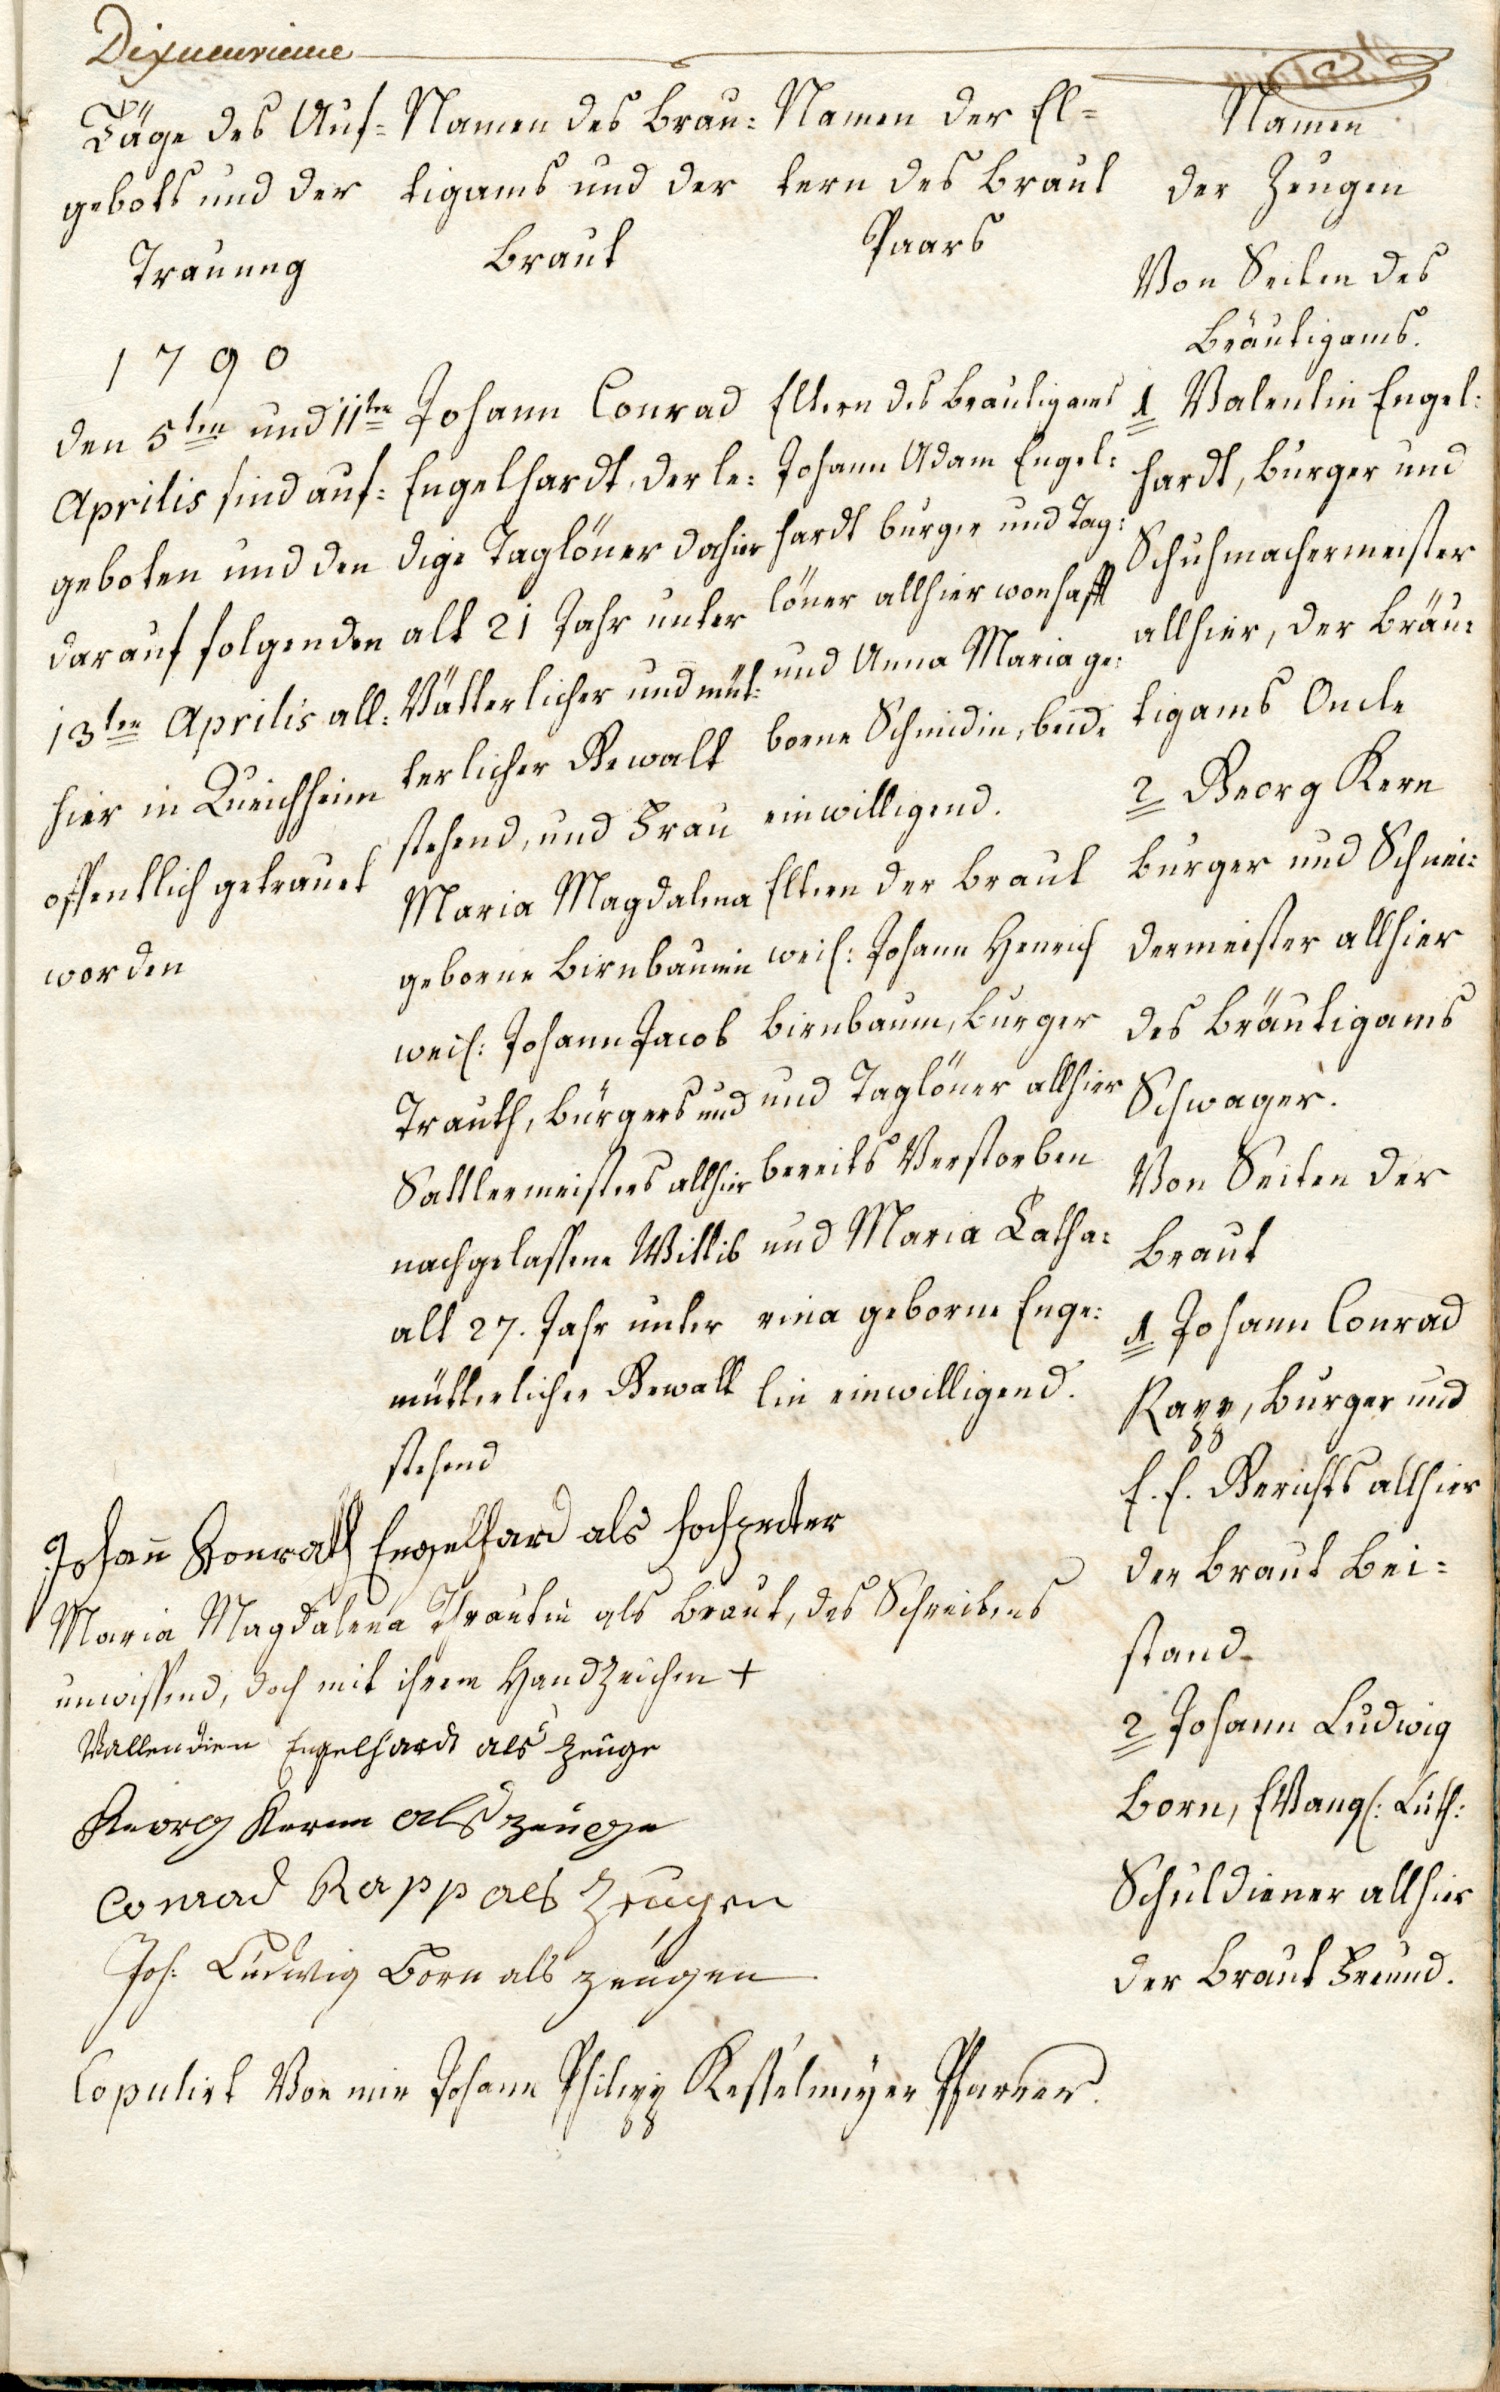 Dixneuvieme
Täge des Auf=
gebots und der
Trauung
1790
den 5ten und 11ten
Aprilis sind auf=
geboten und den
darauf folgenden
13ten Aprilis all=
hier in Queichheim
offentlich getrauet
worden
Namen des Bräu=
tigams und der
Braut
Johann Conrad
Engelhardt, der le=
dige Taglöner dahier
alt 21 Jahr unter
Vätterlicher und müt=
terlicher Gewalt
stehend, und Frau
Maria Magdalena
geborne Birnbaumin
weil: Johann Jacob
Trauth, Bürgers und
Sattlermeisters allhier
nachgelassene Wittib
alt 27. Jahr unter
mütterlicher Gewalt
stehend
Namen der El=
tern des Braut
Paars
Eltern des Bräutigams
Johann Adam Engel=
hardt burger und Tag=
löner allhier wonhafft
und Anna Maria ge=
borne Schmidin, beide
einwilligend.
Eltern der Braut
weil: Johann Henrich
Birnbaum, burger
und Taglöner allhier
bereits Verstorben
und Maria Catha=
rina geborne Enge=
lin einwilligend.
Namen
der Zeugen
Von Seiten des
Bräutigams.
1 Valentin Engel=
hardt, burger und
Schuhmachermeister
allhier, der Bräu=
tigams Oncle
2 Georg Kern
burger und Schnei=
dermeister allhier
des Bräutigams
Schwager.
Von Seiten der
Braut
1 Johann Conrad
Rapp, burger und
E. E. Gerichts allhier
der Braut Bei=
stand
2 Johann Ludwig
Born, EVangl: Luth:
Schuldiener allhier
der Braut Freund.
Johann Conrath Engelhard als hochzeiter
Maria Magdalena Thrautin als Braut, des Schreibens
unwissend, doch mit ihrem Handzeichen +
Vallendien Engelhardt als Zeuge
Georg Kern als zeuge
Conrad Rapp als Zeugen
Joh. Ludwig Born als zeugen
Copulirt Von mir Johann Philipp Kesselmeyer Pfarrer.